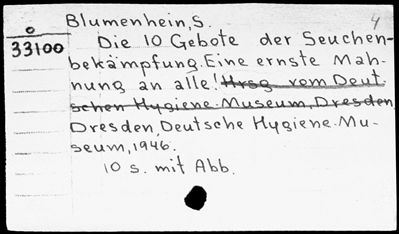 Blumenhein, S.
4
o
33100
Die 10 Gebote der Seuchen-
bekämpfung. Eine ernste Mah-
nung an alle! Hrsg. vom Deut-
schen Hygiene-Museum, Dresden
Dresden, Deutsche Hygiene-Mu-
seum, 1946.
10 s. mit Abb.